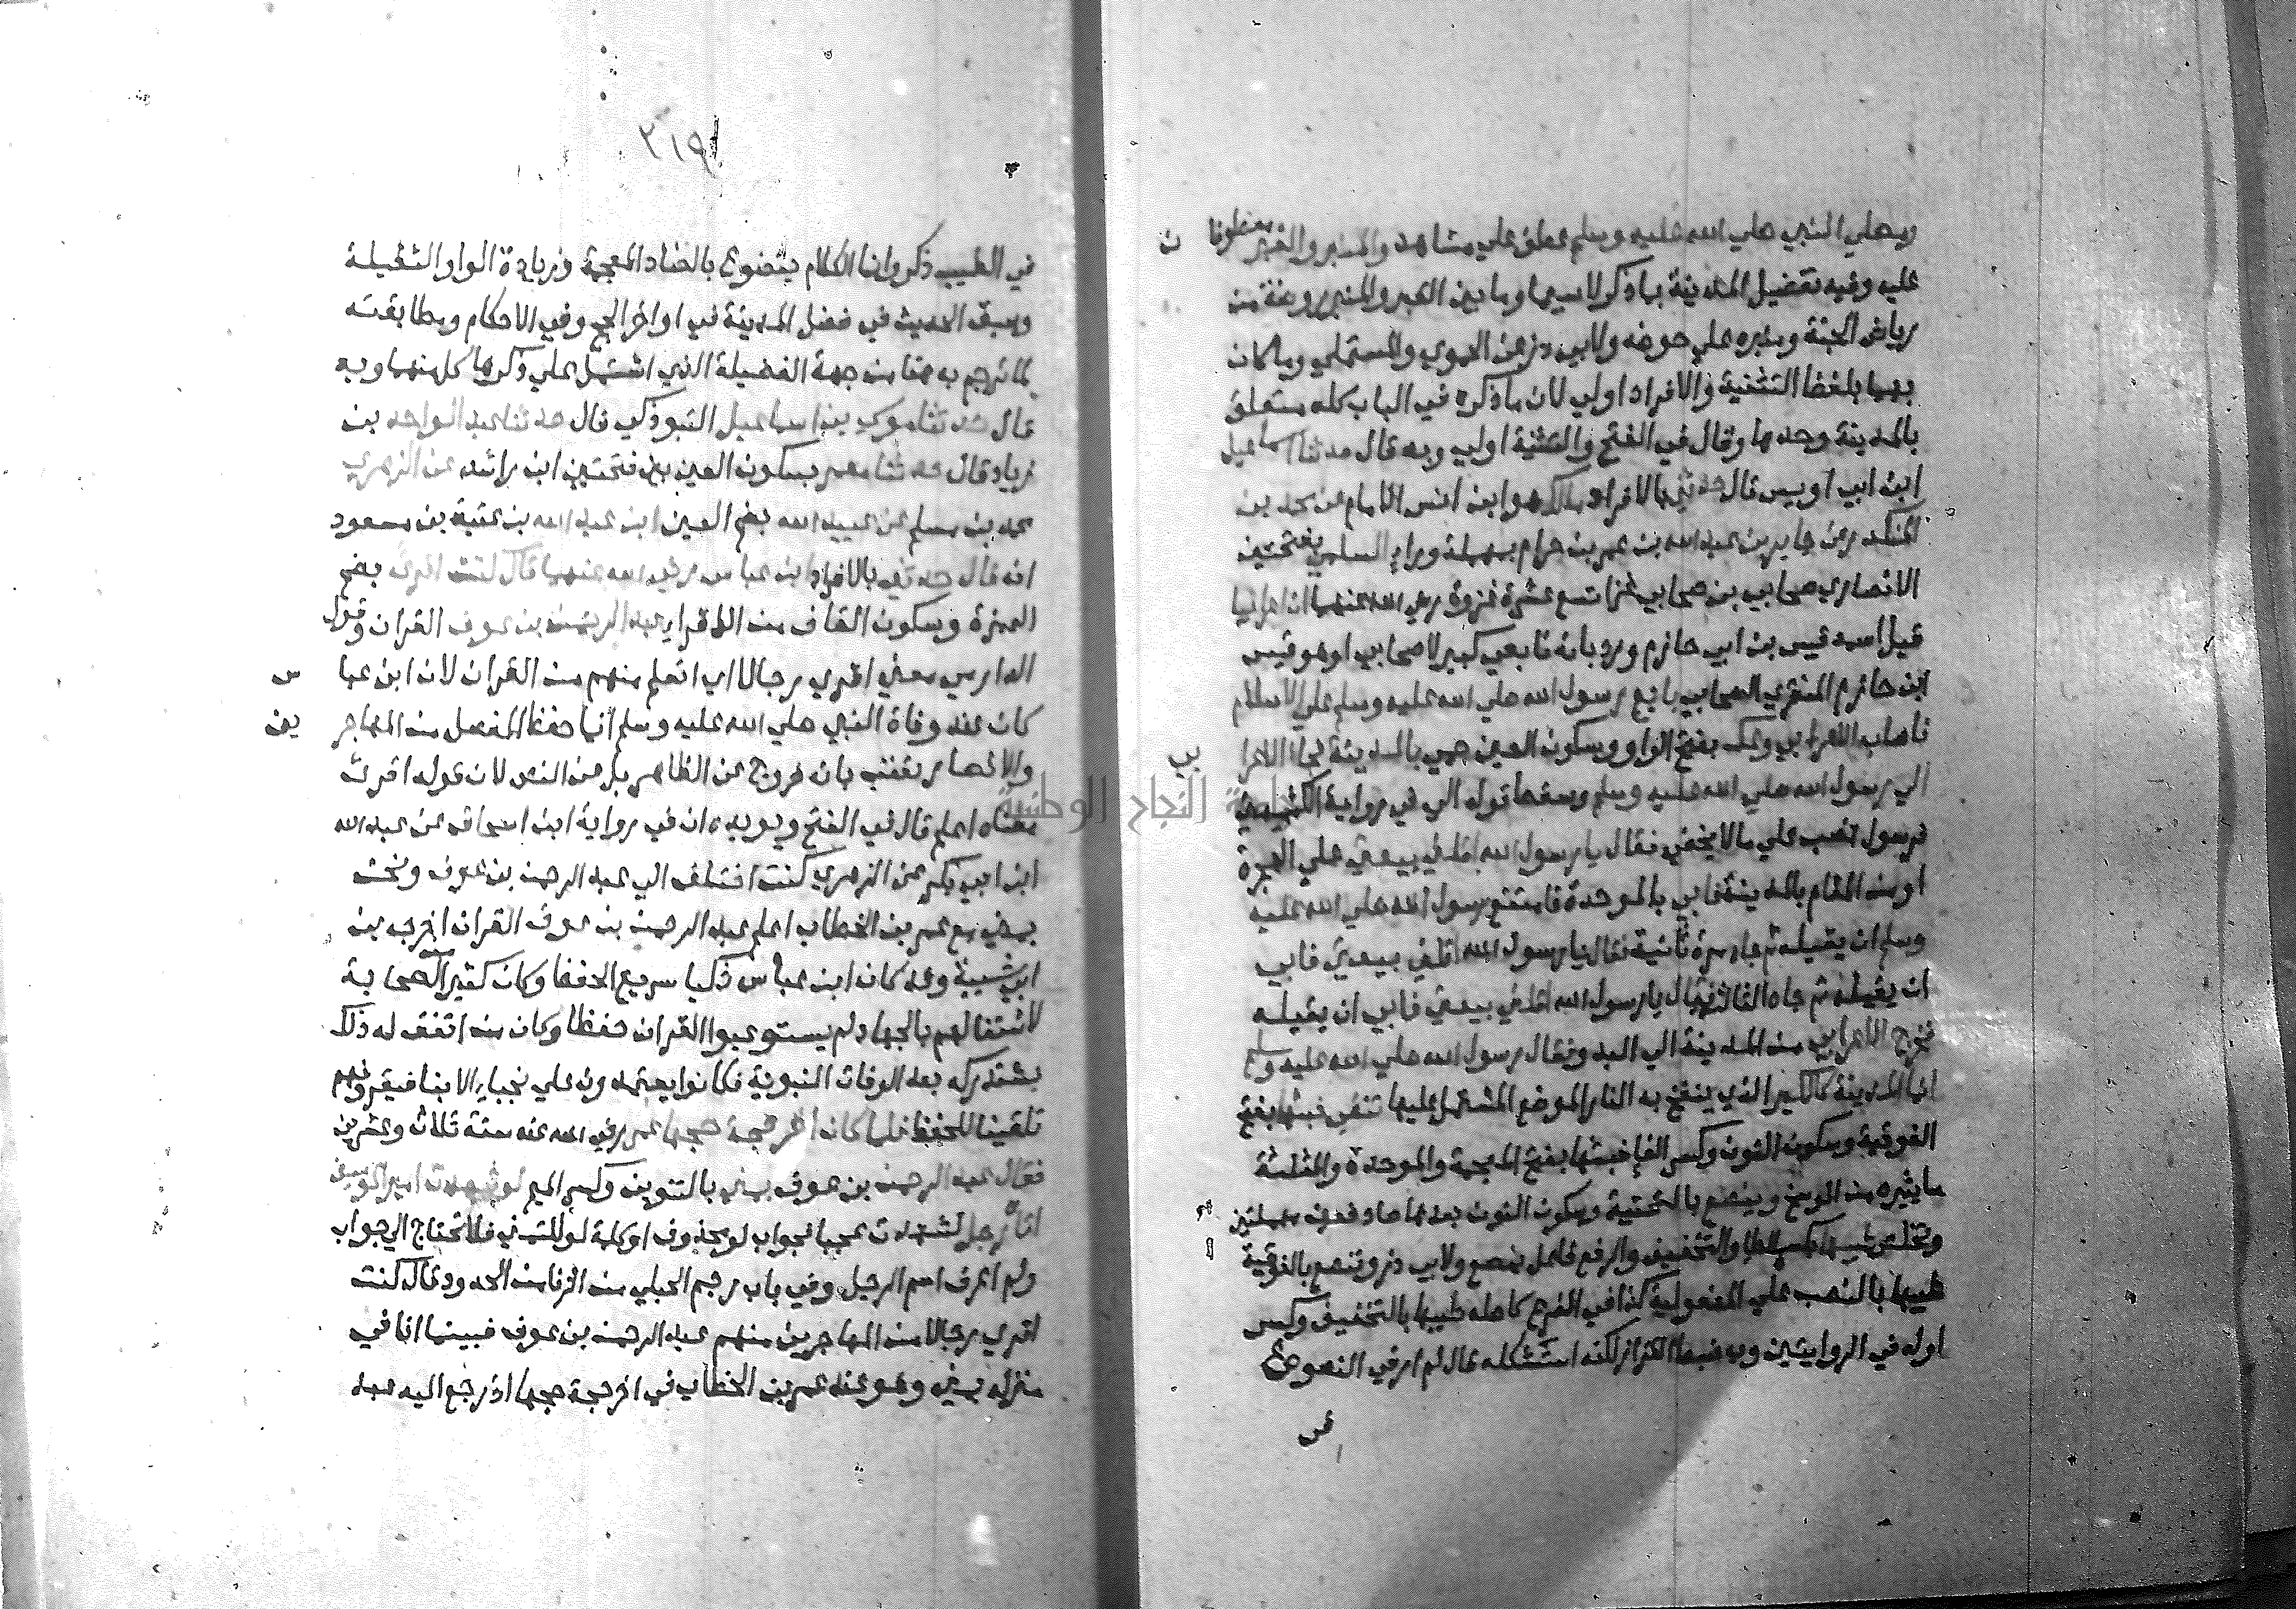 ومصلي النبي صلي الله عليه وسلم عطف علي مشاهد والمنبر والقبر معطوفان
عليه وفيه تفضيل المدينة بما ذكر لاسيما وما بين القبر والمنبر روضة من
رياض الجنة ومنبره علي حوضه ولابي ذر عن الحموي والمستملي وما كان
بهما بلفظ التثنية والافراد اولي لان ما ذكره في الباب كله متعلق
بالمدينة وحدها وقال في الفتح والتثنية اولي وبه قال حدثنا اسماعيل
ابن ابي اويس قال حدثني بالافراد مالك هو ابن انس الامام عن محمد بن
المنكدر عن جابر بن عبد الله بن عمرو بن حرام بمهملة وراء السلمي بفتحتين
الانصاري صحابي بن صحابي غزا تسع عشرة غزوة رضي الله عنهما ان اعرابيا
قيل اسمه قيس بن ابي حازم ورد بانه تابعي كبير لا صحابي او هو قيس
ابن حازم المنقري الصحابي بايع رسول الله صلي الله عليه وسلم علي الاسلام
فاصاب الاعرابي وعك بفتح الواو وسكون العين حمي بالمدينة فجاء الاعرابي
الي رسول الله صلي الله عليه وسلم وسقط قوله الي في رواية الكشميهني
فرسول نصب علي ما لا يخفي فقال يا رسول الله اقلني بيعتي علي الهجرة
او من المقام بالمدينة فابي بالموحدة فامتنع رسول الله صلي الله عليه
وسلم ان يقيله ثم جاءه مرة ثانية فقال يا رسول الله اقلني بيعتي فابي
ان يقيله ثم جاه الثالثة فقال يا رسول الله اقلني بيعتي فابي ان يقيله
فخرج الاعرابي من المدينة الي البدو فقال رسول الله صلي الله عليه وسلم
انما المدينة كالكير الذي ينفخ به النار الموضع المشتمل عليها تنفي خبثها بفتح
الفوقية وسكون النون وكسر الفا خبثها بفتح المعجمة والموحدة والمثلثة
ما يثيره من الوسخ وينصع بالتحتية وسكون النون بعدها صاد فعين مهملتين
وتخلص طيبها بكسر الطا والتخفيف والرفع فاعل ينصع ولابي ذر وتنصع بالفوقية
طيبها بالنصب علي المفعولية كذا في الفرع كاصله طيبها بالتخفيف وكسر
اوله في الروايتين وبه ضبطه القزاز لكنه استشكله فقال لم ار في النصوع
في
٣١٩
في الطيب ذكر وانما الكلام يتضوع بالضاد المعجمة وزيادة الواو الثقيلة
وسبق الحديث في فضل المدينة في اواخر الحج وفي الاحكام ومطابقته
لما ترجم به هنا من جهة الفضيلة الذي اشتمل علي ذكرها كل منهما وبه
قال حدثنا موسي بن اسماعيل التبوذكي قال حدثنا عبد الواحد بن
زياد قال حدثنا معمر بسكون العين بين فتحتين ابن راشد عن الزهري
محمد بن مسلم عن عبيد الله بضم العين ابن عبد الله بن عتبة بن مسعود
انه قال حدثني بالافراد ابن عباس رضي الله عنهما قال كنت اقرئ بضم
الهمزة وسكون القاف من الاقراء عبد الرحمن بن عوف القران وقول
الداودي معني اقرئ رجالا اي اتعلم منهم من القران لان ابن عباس
كان عند وفاة النبي صلي الله عليه وسلم انما حفظ المفصل من المهاجرين
والانصار تعقب بانه خروج عن الظاهر بل عن النص لان قوله اقرئ
معناه اعلم قال في الفتح ويويده ان في رواية ابن اسحاق عن عبد الله
ابن ابي بكر عن الزهري كنت اختلف الي عبد الرحمن بن عوف ونحن
بمني مع عمر بن الخطاب اعلم عبد الرحمن بن عوف القران اخرجه بن
ابي شيبة وقد كان ابن عباس ذكيا سريع الحفظ وكان كثير من الصحابة
لاشتغالهم بالجهاد لم يستوعبوا القران حفظا وكان من اتفق له ذلك
يستدركه بعد الوفات النبوية فكانوا يعتمدون علي نجباء الابنا فيقرونهم
تلقينا للحفظ فلما كان اخر حجة حجها عمر رضي الله عنه سنة ثلاث وعشرين
فقال عبد الرحمن بن عوف بمني بالتنوين وكسر الميم لو شهدت امير المومنين
اتاه رجل لشهدت عجبا فجواب لو محذوف او كلمة لو للتمني فلا تحتاج الي جواب
ولم اعرف اسم الرجل وفي باب رجم الحبلي من الزنا من الحدود قال كنت
اقرئ رجالا من المهاجرين منهم عبد الرحمن بن عوف فبينما انا في
منزله بمني وهو عند عمر بن الخطاب في اخر حجة حجها اذ رجع اليه عبد
جامعة النجاح الوطنية